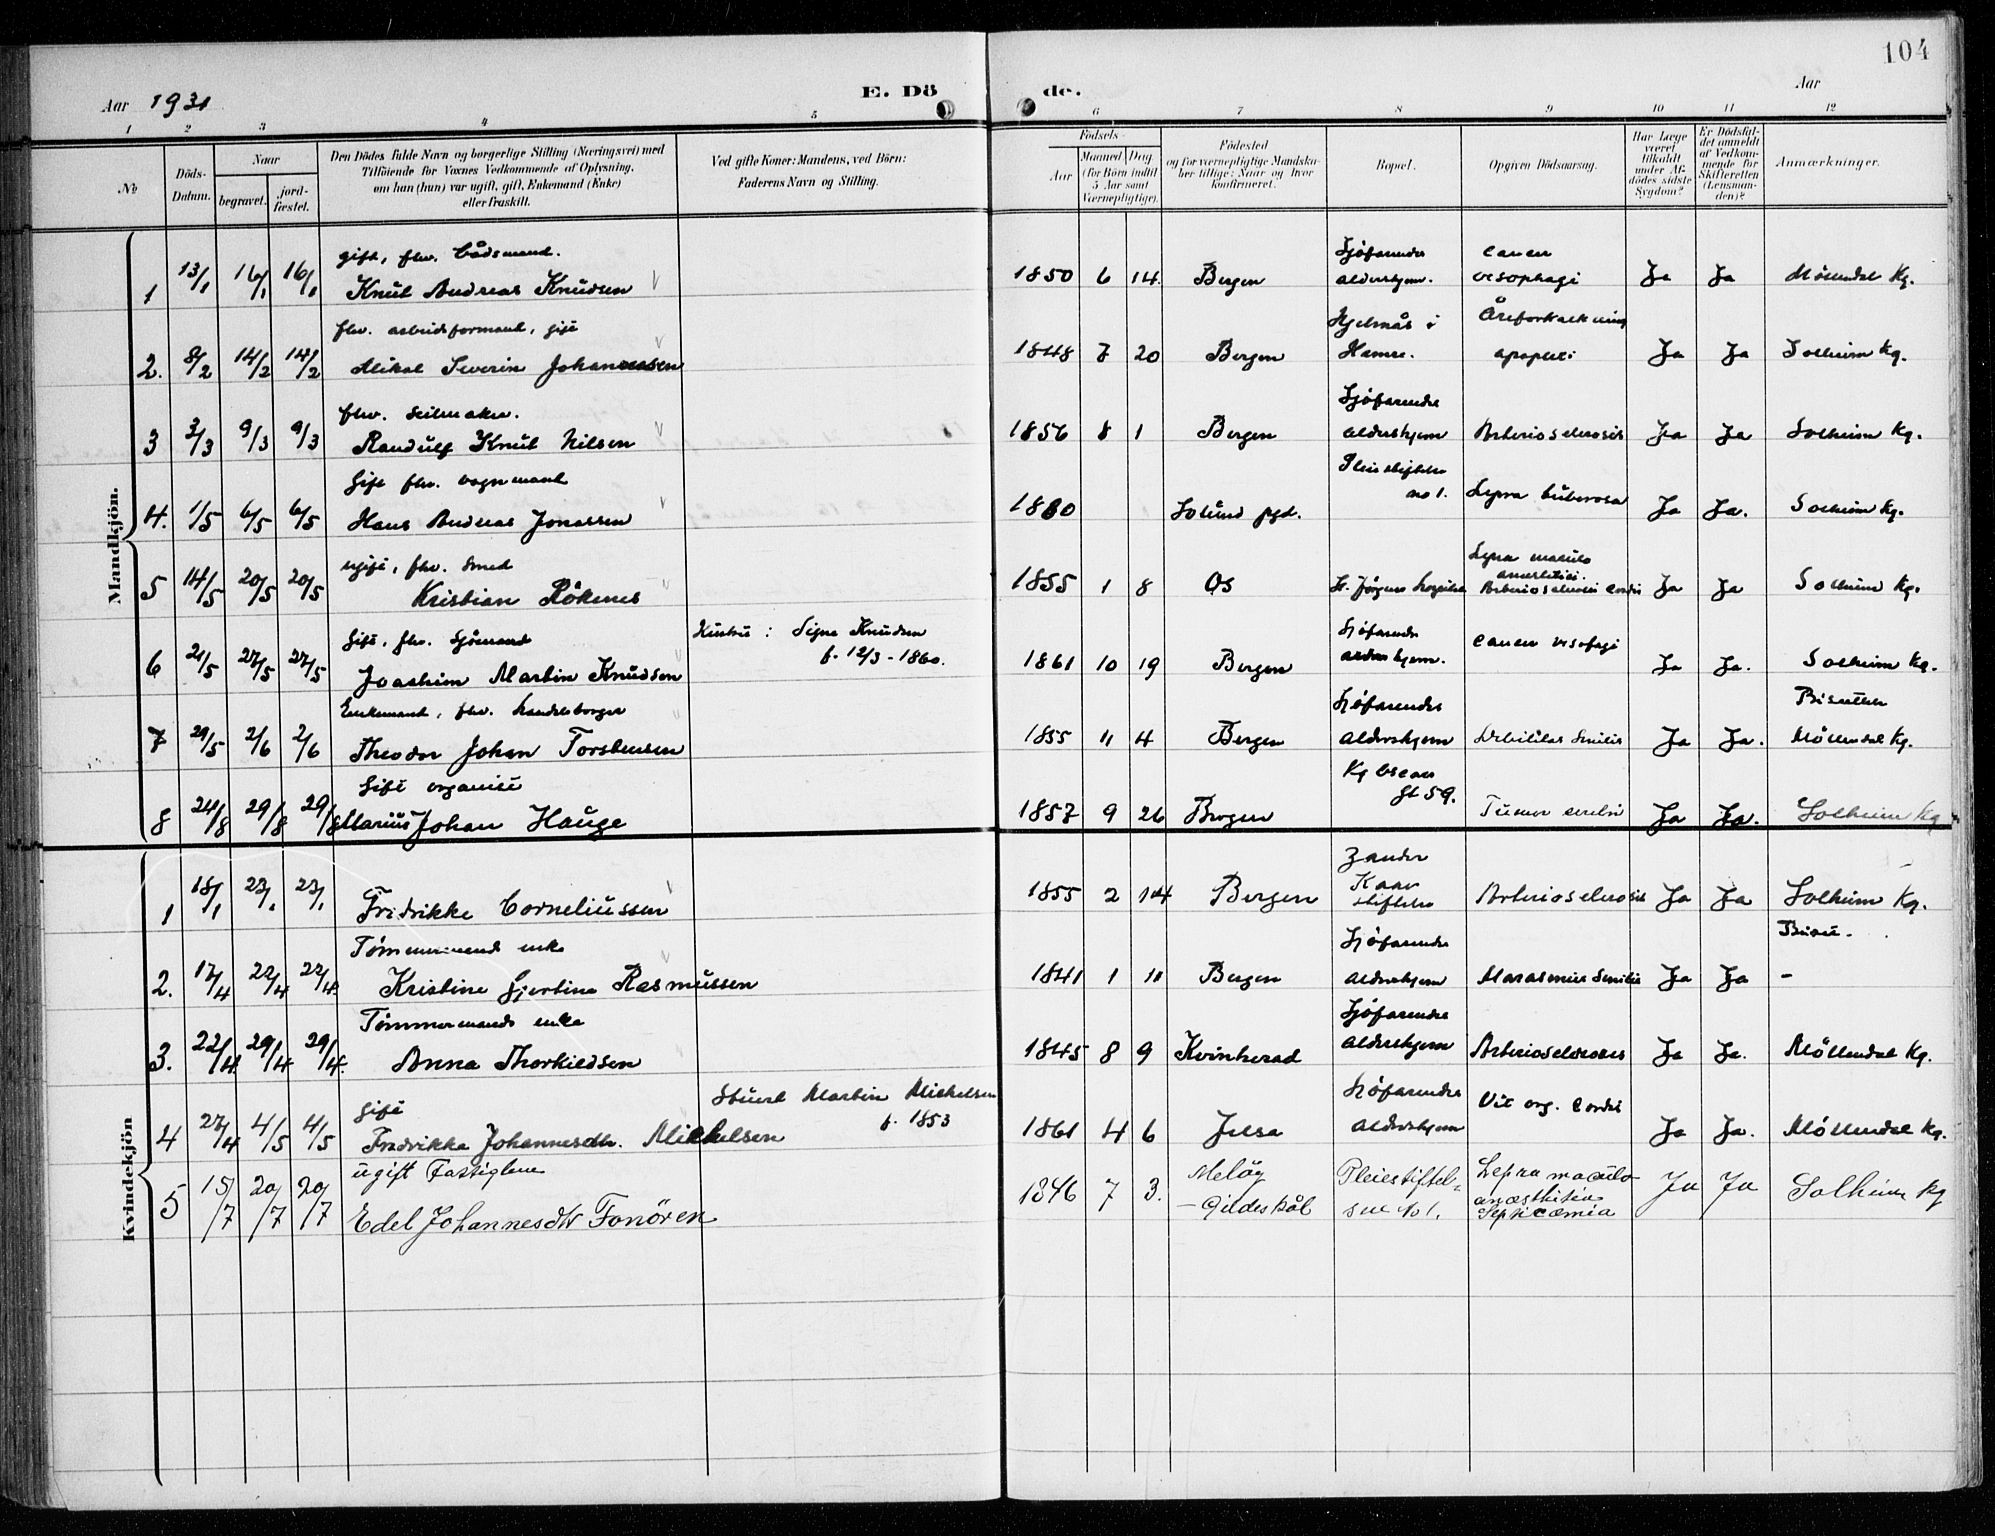 104
Aar 1931
E. Dö
de.
Aar
1 2 3 4 5 6 7 8 9 10 11 12
No
Döds-
Datum.
Naar
begravet.
jord-
fæstet.
Den Dödes fulde Navn og borgerlige Stilling (Næringsvei) med
Tilföiende for Voxnes Vedkommende af Oplysning,
om han (hun) var ugift, gift, Enkemand (Enke)
eller fraskilt.
Ved gifte Koner: Mandens, ved Börn:
Faderens Navn og Stilling.
Födsels-
Aar
Maaned Dag
(for Börn indtil
5 Aar samt
Værnepligtige).
Födested
og for værnepligtige Mandska-
ber tillige: Naar og hvor
konfirmeret.
Bopæl.
Opgiven Dödsaarsag.
Har Læge
været
tilkaldt
under Af-
dödes sidste
Sygdom?
Er Dödsfal-
det anmeldt
af Vedkom-
mende for
Skifteretten
(Lensman-
den)?
Anmærkninger.
Mandkjön.
gift, fhv. bådsmand. Sjöfarendes cancer
1 13/1 16/1 16/1 Knut Andreas Knudsen 1850 6 14. Bergen aldershjem. oesophagi Ja Ja Möllendal Kg.
fhv. arbeidsformand, gift Hjelmås i Åreforkalkning
2. 8/2 14/2 14/2 Mikal Severin Johannessen 1848 7 20 Bergen Hamre. apoplexi Ja Ja Solheim Kg.
fhv. seilmaker. Sjöfarendes
3 3/3 9/3 9/3 Randulf Knut Nilsen 1856 8 1 Bergen aldershjem Arteriosclerosis Ja Ja Solheim Kg.
Gift fhv. vognmand Pleiestiftelse
no 1. Lepra tuberosa
4. 1/5 6/5 6/5 Hans Andreas Jonassen 1860 Solund pgd. Ja Ja. Solheim Kg.
ugift, fhv. smed Lepra maculo
anæsthetica.
5 14/5 20/5 20/5 Kristian Rökenes 1855 1 8 Os St. Jörgens hospital Arteriosclerosis cordis Ja Ja Solheim Kg.
Gift, fhv. sjömand Hustru: Signe Knudsen Sjöfarendes cancer oesofagi
f. 12/3-1860.
6 21/5 27/5 27/5 Joachim Martin Knudsen 1861 10 19 Bergen aldershjem. Ja Ja. Solheim Kg.
Enkemand, fhv. handelsborger Sjöfarendes Bisættelse
7 29/5 2/6 2/6 Theodor Johan Torstensen 1855 11 4 Bergen Aldershjem Debilitas Senilis Ja Ja. Möllendal Kg.
Gift organist Kg Oscars
gt 59.
8 24/8 29/8 29/8 Marius Johan Hauge 1857 9 26 Bergen Tumor cerebri Ja Ja. Solheim Kg
Kvindekjön
Zander
Kaae
stiftelse
1 18/1 23/1 23/1 Fredrikke Corneliussen 1855 2 14 Bergen Arteriosclerosis Ja Ja Solheim Kg.
Tömmermands enke Sjöfarendes Bisat.
2. 17/4 22/4 22/4 Kristine Gjertine Rasmussen 1841 1 11 Bergen Aldershjem Marasmus Senilis Ja Ja -
Tömmermands enke Sjöfarendes
3. 22/4 29/4 29/4 Anna Thorkildsen 1845 8 9 Kvinherad Aldershjem Arteriosclerosis Ja Ja. Möllendal Kg.
Gift Stuert Martin Mikkelsen Sjöfarendes Vit. org. Cordis
f. 1853
4 27/4 4/5 4/5 Fredrikka Johannesdtr. Mikkelsen 1861 4 6 Jelsa Aldershjem Ja Ja. Möllendal Kg.
ugift Fattiglem Melöy Pleiestiftel- Lepra maculo
anæsthetica
5 15/7 20/7 20/7 Edel Johannesdtr Fonören 1846 7 3. - Gildeskål sen No 1. Septicæmia Ja Ja Solheim Kg